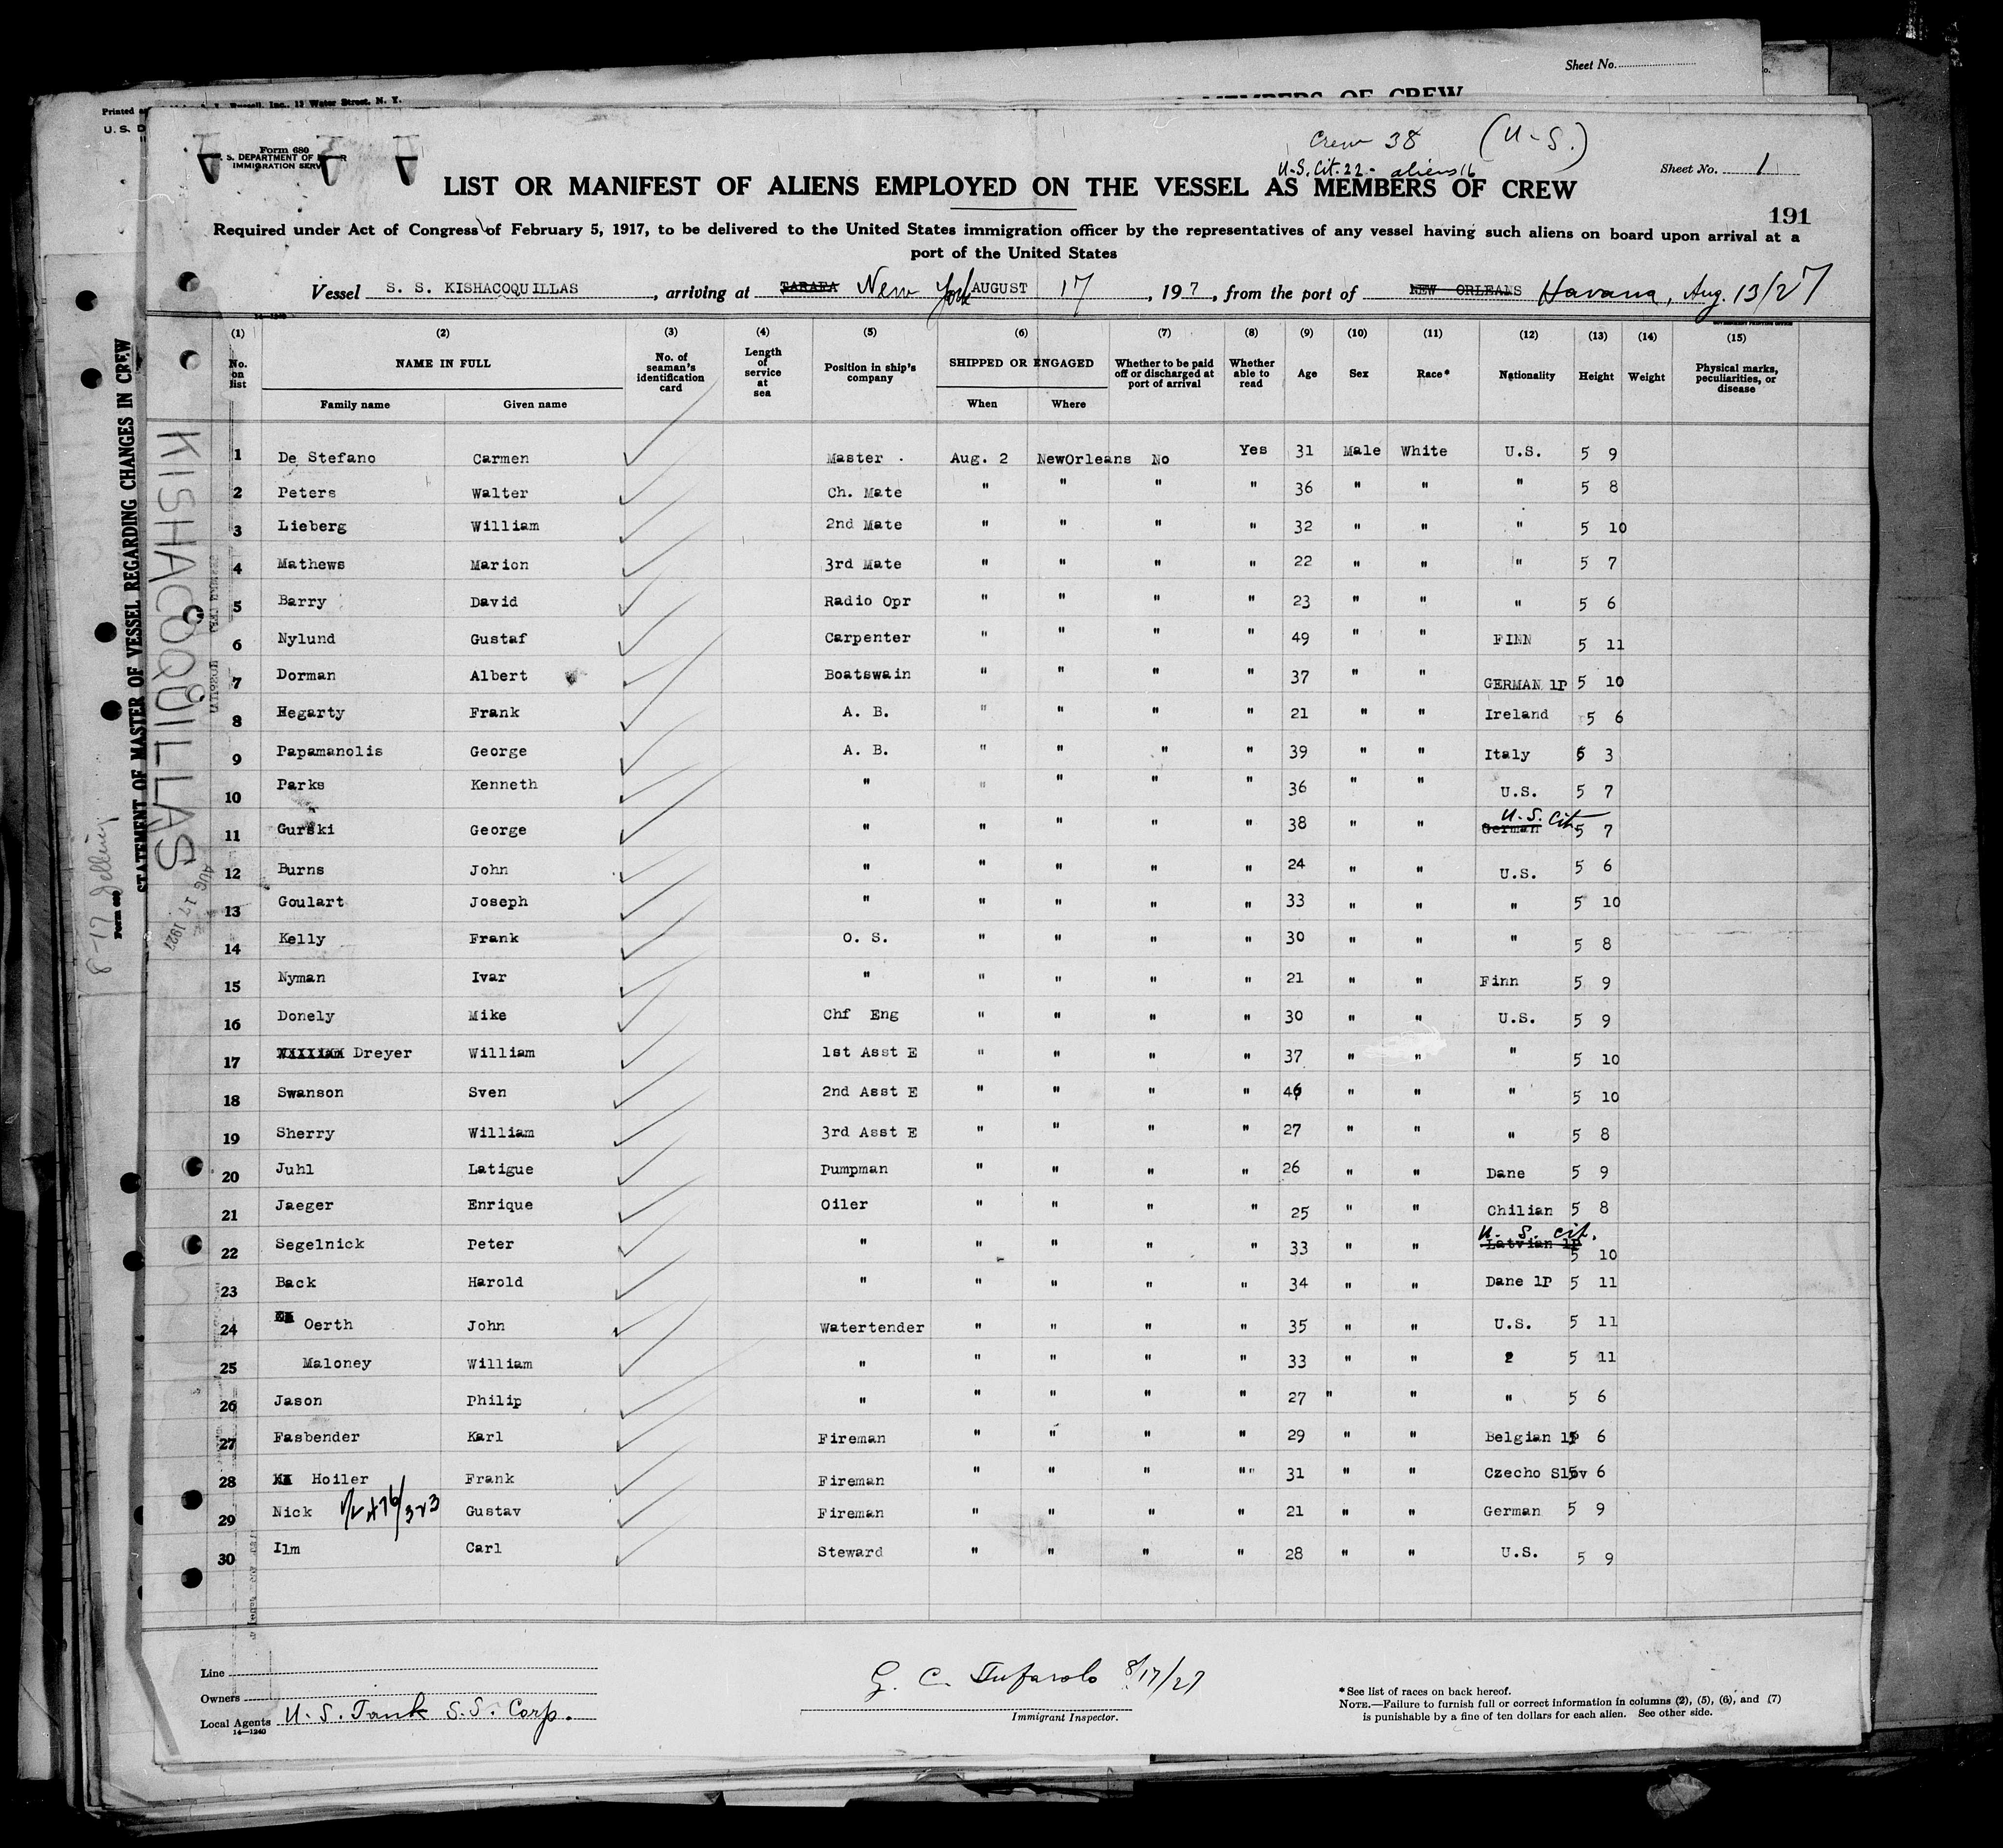 Sheet No.
MEMBERS OF CREW
Inc., 13 Water Street, N. Y.
Printed
U. S. D
Form 680
U. S. DEPARTMENT OF LABOR
IMMIGRATION SERV
Crew 38 (U-S.)
U.S. Cit. 22 - aliens 16
Sheet No. 1
LIST OR MANIFEST OF ALIENS EMPLOYED ON THE VESSEL AS MEMBERS OF CREW
191
Required under Act of Congress of February 5, 1917, to be delivered to the United States immigration officer by the representatives of any vessel having such aliens on board upon arrival at a
port of the United States
Vessel S. S. KISHACOQUILLAS, arriving at TARAFA New York AUGUST 17, 19 7, from the port of NEW ORLEANS Havana, Aug. 13/27
14—1240
GOVERNMENT PRINTING OFFICE
(1) (2) (3) (4) (5) (6) (7) (8) (9) (10) (11) (12) (13) (14) (15)
No. on list NAME IN FULL No. of seaman's identification card Length of service at sea Position in ship's company SHIPPED OR ENGAGED Whether to be paid off or discharged at port of arrival Whether able to read Age Sex Race* Nationality Height Weight Physical marks, peculiarities, or disease
Family name Given name When Where
1 De Stefano Carmen Master . Aug. 2 NewOrleans No Yes 31 Male White U.S. 5 9
2 Peters Walter Ch. Mate " " " " 36 " " " 5 8
3 Lieberg William 2nd Mate " " " " 32 " " " 5 10
4 Mathews Marion 3rd Mate " " " " 22 " " " 5 7
5 Barry David Radio Opr " " " " 23 " " " 5 6
6 Nylund Gustaf Carpenter " " " " 49 " " FINN 5 11
7 Dorman Albert Boatswain " " " " 37 " " GERMAN 1P 5 10
8 Hegarty Frank A. B. " " " " 21 " " Ireland 5 6
9 Papamanolis George A. B. " " " " 39 " " Italy 5 3
10 Parks Kenneth " " " " " 36 " " U.S. 5 7
11 Gurski George " " " " " 38 " " German U.S. Cit 5 7
12 Burns John " " " " " 24 " " U.S. 5 6
13 Goulart Joseph " " " " " 33 " " " 5 10
14 Kelly Frank O. S. " " " " 30 " " " 5 8
15 Nyman Ivar " " " " " 21 " " Finn 5 9
16 Donely Mike Chf Eng " " " " 30 " " U.S. 5 9
17 William Dreyer William 1st Asst E " " " " 37 " " " 5 10
18 Swanson Sven 2nd Asst E " " " " 46 " " " 5 10
19 Sherry William 3rd Asst E " " " " 27 " " " 5 8
20 Juhl Latigue Pumpman " " " " 26 " " Dane 5 9
21 Jaeger Enrique Oiler " " " " 25 " " Chilian 5 8
22 Segelnick Peter " " " " " 33 " " Latvian 1P U. S. cit. 5 10
23 Back Harold " " " " " 34 " " Dane 1P 5 11
24 Oerth John Watertender " " " " 35 " " U.S. 5 11
25 Maloney William " " " " " 33 " " 2 5 11
26 Jason Philip " " " " " 27 " " " 5 6
27 Fasbender Karl Fireman " " " " 29 " " Belgian 1P 5 6
28 Hoiler Frank Fireman " " " "" 31 " " Czecho Slov 5 6
29 Nick Gustav Fireman " " " " 21 " " German 5 9
30 Ilm Carl Steward " " " " 28 " " U.S. 5 9
Line
Owners
Local Agents U. S. Tank S.S. Corp.
14—1240
G. C. Tufarolo 8/17/27
Immigrant Inspector.
*See list of races on back hereof.
NOTE.—Failure to furnish full or correct information in columns (2), (5), (6), and (7)
is punishable by a fine of ten dollars for each alien. See other side.
STATEMENT OF MASTER OF VESSEL REGARDING CHANGES IN CREW
KISHACOQUILLAS
AUG 17 1927
Form 680
8-17